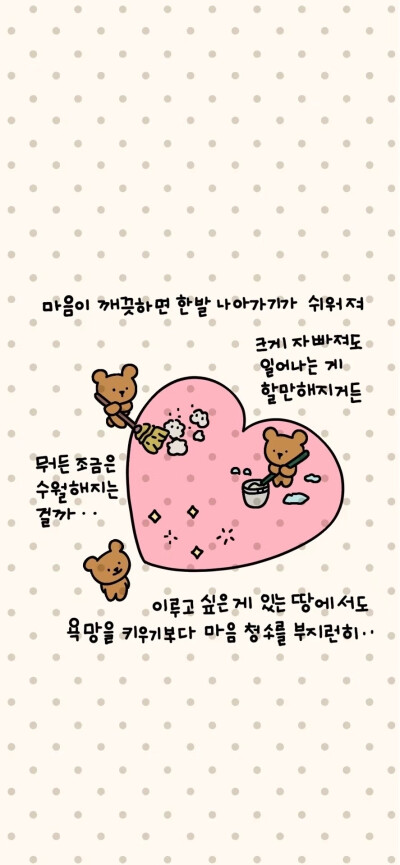 마음이 깨끗하면 한발 나아가기가 쉬워져
크게 자빠져도
일어나는 게
할만해지거든
뭐든 조금은
수월해지는
걸까··
이루고 싶은 게 있는 땅에서도
욕망을 키우기보다 마음 청소를 부지런히··